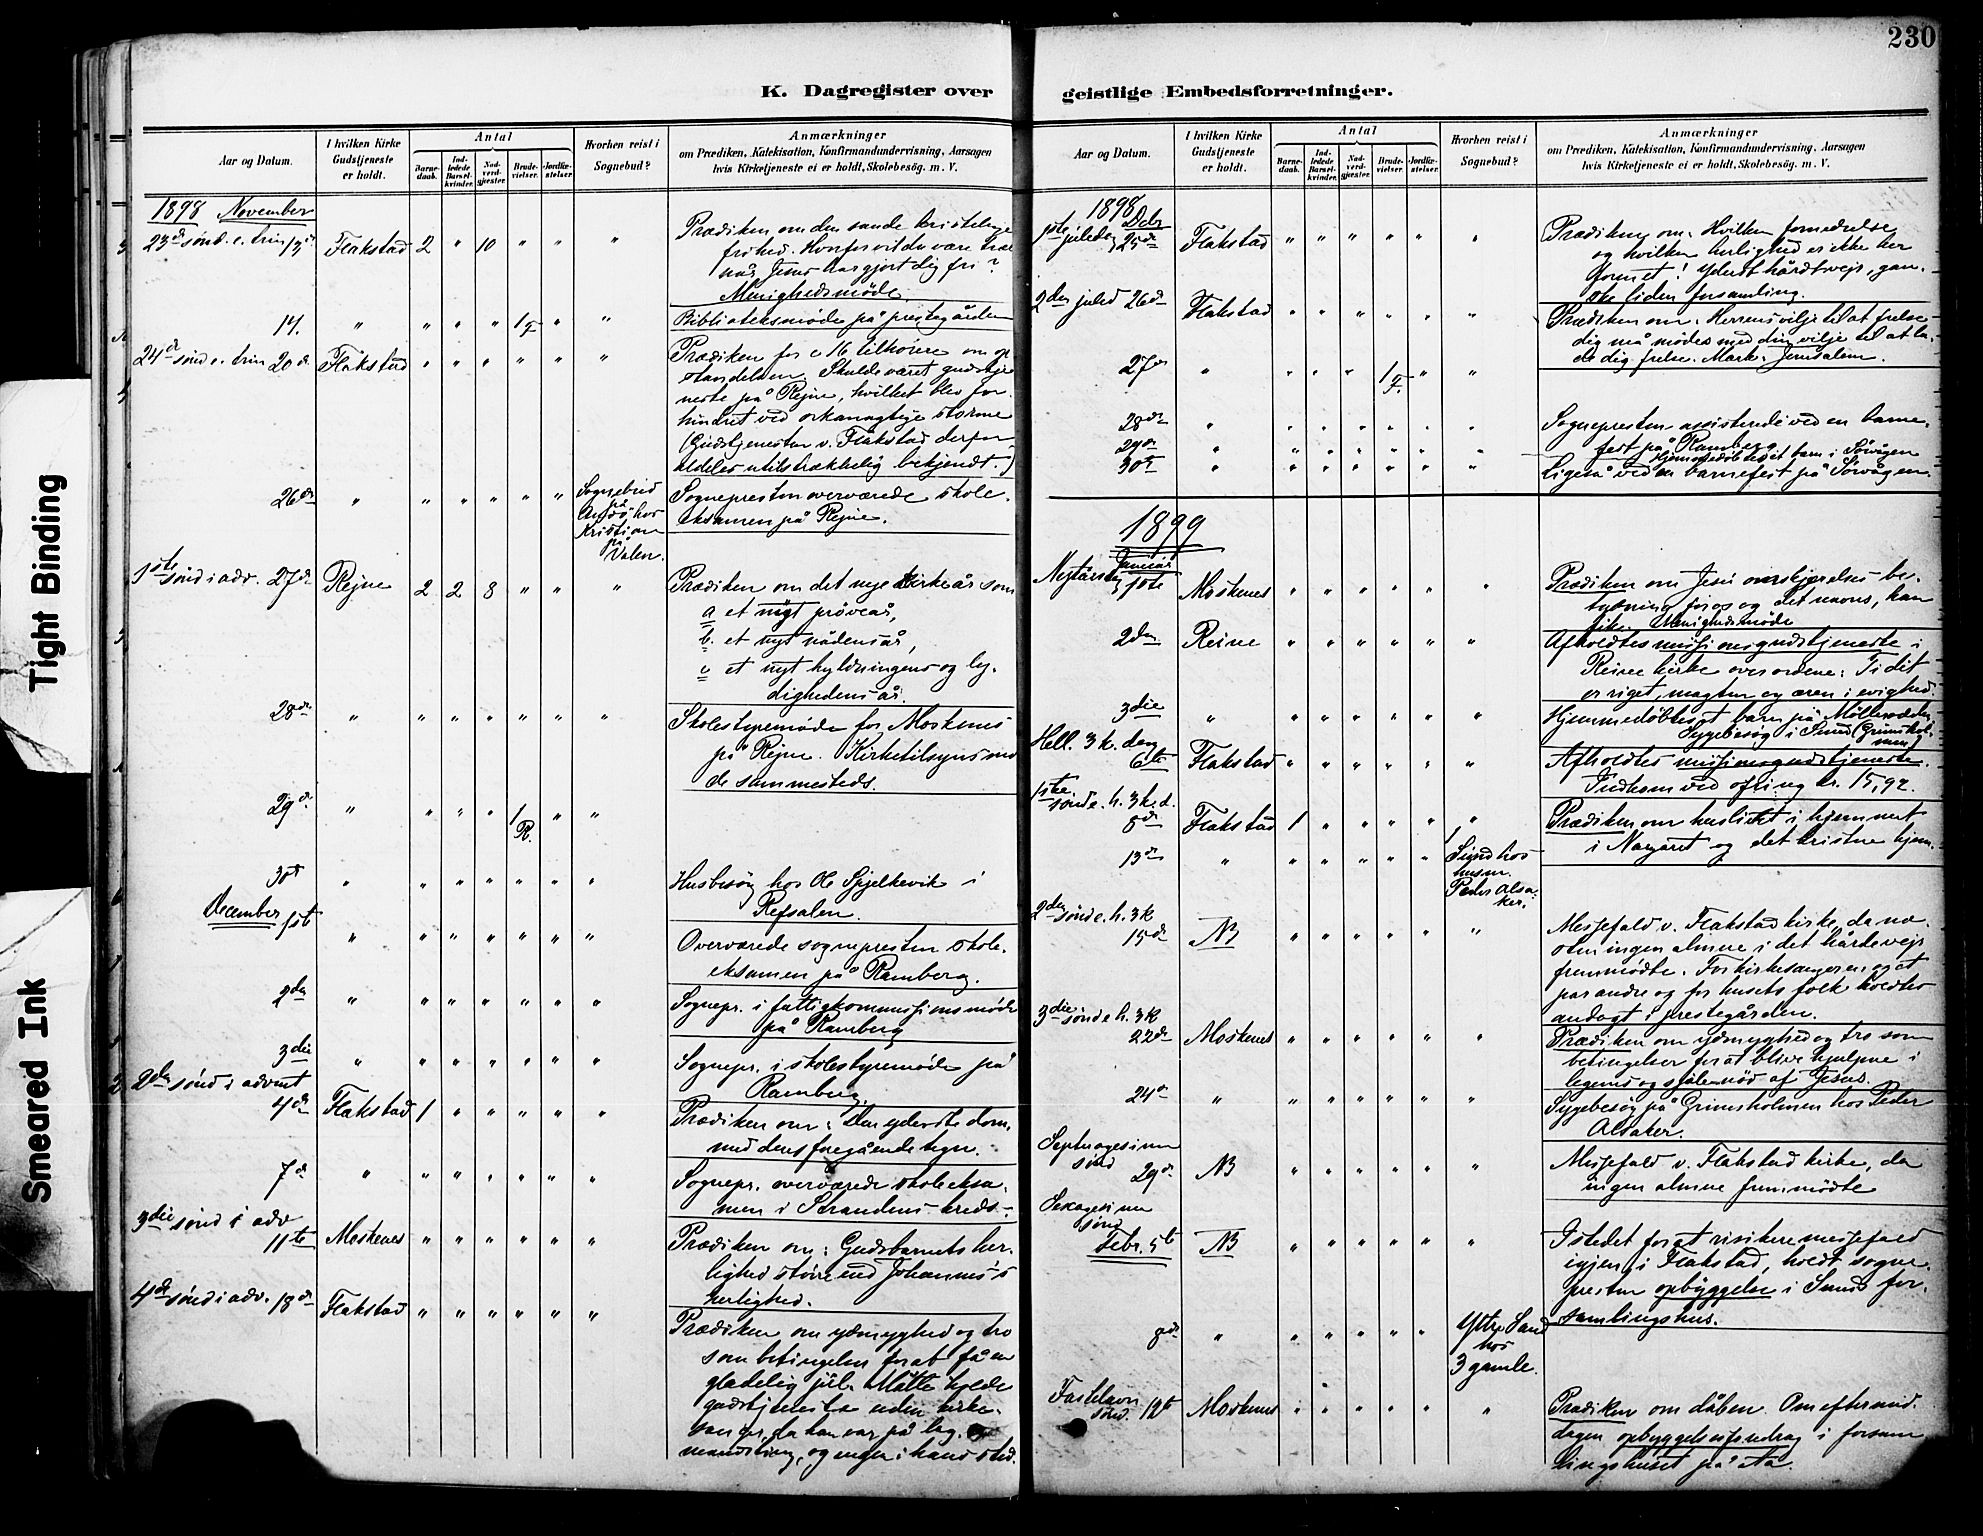 230
K. Dagregister over geistlige Embedsforretninger.
Aar og Datum.
I hvilken Kirke Gudstjeneste er holdt.
Antal
Barne-daab.
Ind-ledede Barsel-kvinder.
Nad-verd-gjester.
Brude-vielser.
Jordfæ-stelser.
Hvorhen reist i Sognebud?
Anmærkninger
om Prædiken, Katekisation, Konfirmandundervisning, Aarsagen
hvis Kirketjeneste ei er holdt, Skolebesög. m. V.
1898 November
23de sönd. e. trin 13de Flakstad 2 " 10 " " " Prædiken om den sande kristelige
frihed. Hvorfor vil du være træl
når Jesus har gjort dig fri?
Menighedsmöde
14. " " " " 1 F " " Biblioteksmöde på prestegården
24de sönd e. trin 20de Flakstad " " " " " " Prædiken for c 16 tilhörere om op
standelsen. Skulde været gudstje
neste på Rejne, hvilket blev for-
hindret ved orkanagtige storme
(Gudstjenesten v. Flakstad derfor
aldeles utilstrækkelig bekjendt.)
26de " " " " " " Sognebud
på
hos
Kristian
på
Valen.
Sognepresten overværede skole-
eksamen på Rejne.
1ste sönd i adv. 27de Rejne 2 2 8 " " " Prædiken om det nye kirkeår som
a et nyt pröveår,
b. et nyt nådensår,
c et nyt hyldningens og ly-
dighedens år.
28de " " " " " " " Skolestyremöde for Moskenes
på Rejne. Kirketilsynsmö
de sammesteds.
29de " " " " 1 R. " "
30te " " " " " " " Husbesög hos Ole Spjelkevik i
Refsalen.
December 1ste " " " " " " " Overværede sognepresten skole-
eksamen på Ramberg.
2den " " " " " " " Sognepr. i fattigkommissionsmöde
på Ramberg
3die " " " " " " " Sognepr. i skolestyremöde på
Ramberg.
2den sönd i advent
4de Flakstad 1 " " " " " Prædiken om: Den yderste dom,
med dens foregående tegn.
7de " " " " " " " Sognepr. overværede skoleeksa-
men i Strandens kreds.
3die sönd i adv
11te Moskenes " " " " " " Prædiken om: Gudsbarnets her-
lighed större end Johannes's
herlighed.
4de sönd i adv. 18de Flakstad " " " " " " Prædiken om ydmyghed og tro
som betingelse for at få en
glædelig jul. Måtte holde
gudstjeneste uden kirke-
sanger, da han var på lag-
mandsting, og ingen i hans sted.
Aar og Datum.
I hvilken Kirke Gudstjeneste er holdt.
Antal
Barne-daab.
Ind-ledede Barsel-kvinder.
Nad-verd-gjester.
Brude-vielser.
Jordfæ-stelser.
Hvorhen reist i Sognebud?
Anmærkninger
om Prædiken, Katekisation, Konfirmandundervisning, Aarsagen
hvis Kirketjeneste ei er holdt, Skolebesög. m. V.
1898
Debr
1ste juledag 25de Flakstad " " " " " " Prædiken om: Hvilken fornedrelse
og hvilken herlighed er ikke her
forenet! Yderst hårdt vejr, gan-
ske liden forsamling.
2den juled 26de Flakstad " " " " " " Prædiken om: Herrens vilje til at frelse
dig må mödes med din vilje til at la-
de dig frelse. Mark: Jerusalem.
27de " " " " 1 F. " "
28de " " " " " " " Sognepresten assisterede ved en barne-
fest på Ramberg.
29de " " " " " " " Hjemmedöbtes et barn i Sörvågen
30te " " " " " " " Ligeså ved en barnefest på Sörvågen.
1899
Januar
Nytårsdag 1ste Moskenes " " " " " " Prædiken om Jesu omskjærelses be-
tydning for os og det navns, han
fik. Menighedsmöde
2den Reine " " " " " " Afholdtes missionsgudstjeneste i
Reine kirke over ordene: Ti dit
er riget, magten og æren i evighed.
3die " " " " " " " Hjemmedöbtes et barn på
Sygebesög i Sund (Grimshol-
men)
Hell. 3 k. dag
6te Flakstad " " " " " " Afholdtes missionsgudstjeneste.
Indkom ved ofring kr. 15,92.
1ste sönd e. h. 3 k. d.
8de Flakstad 1 " " " " " Prædiken om huslivet i hjemmet
i Nazaret og det kristne hjem.
13de " " " " " " Sund hos
husm.
Peder Alsa-
ker.
2den sönd e. h. 3 k
15de NB " " " " " " Messefald v. Flakstad kirke, da næ-
sten ingen almue i det hårde vejr
fremmödte. For kirkesangeren og et
par andre og for husets folk holdtes
andagt i prestegården.
3die sönd e h. 3 k
22de Moskenes " " " " " " Prædiken om ydmyghed og tro som
betingelser for at blive hjulpne i
legems og sjælenöd af Jesus.
24de " " " " " " " Sygebesög på Grimsholmen hos Peder
Alsaker.
Septuagesima
sönd
29de NB " " " " " " Messefald v. Flakstad kirke, da
ingen almue fremmödte
Sexagesima
sönd
Febr. 5te NB " " " " " " Istedet for at risikere messefald
igjen i Flakstad, holdt sogne-
presten opbyggelse i Sund for-
samlingshus.
8de " " " " " " Ytre Sand
hos
3 gamle.
Fastelavn
sönd. 12te Moskenes " " " " " " Prædiken om dåben. Om eftermid-
dagen opbyggelsesforedrag i forsam
lingshuset på Å.
Tight Binding
Smeared Ink